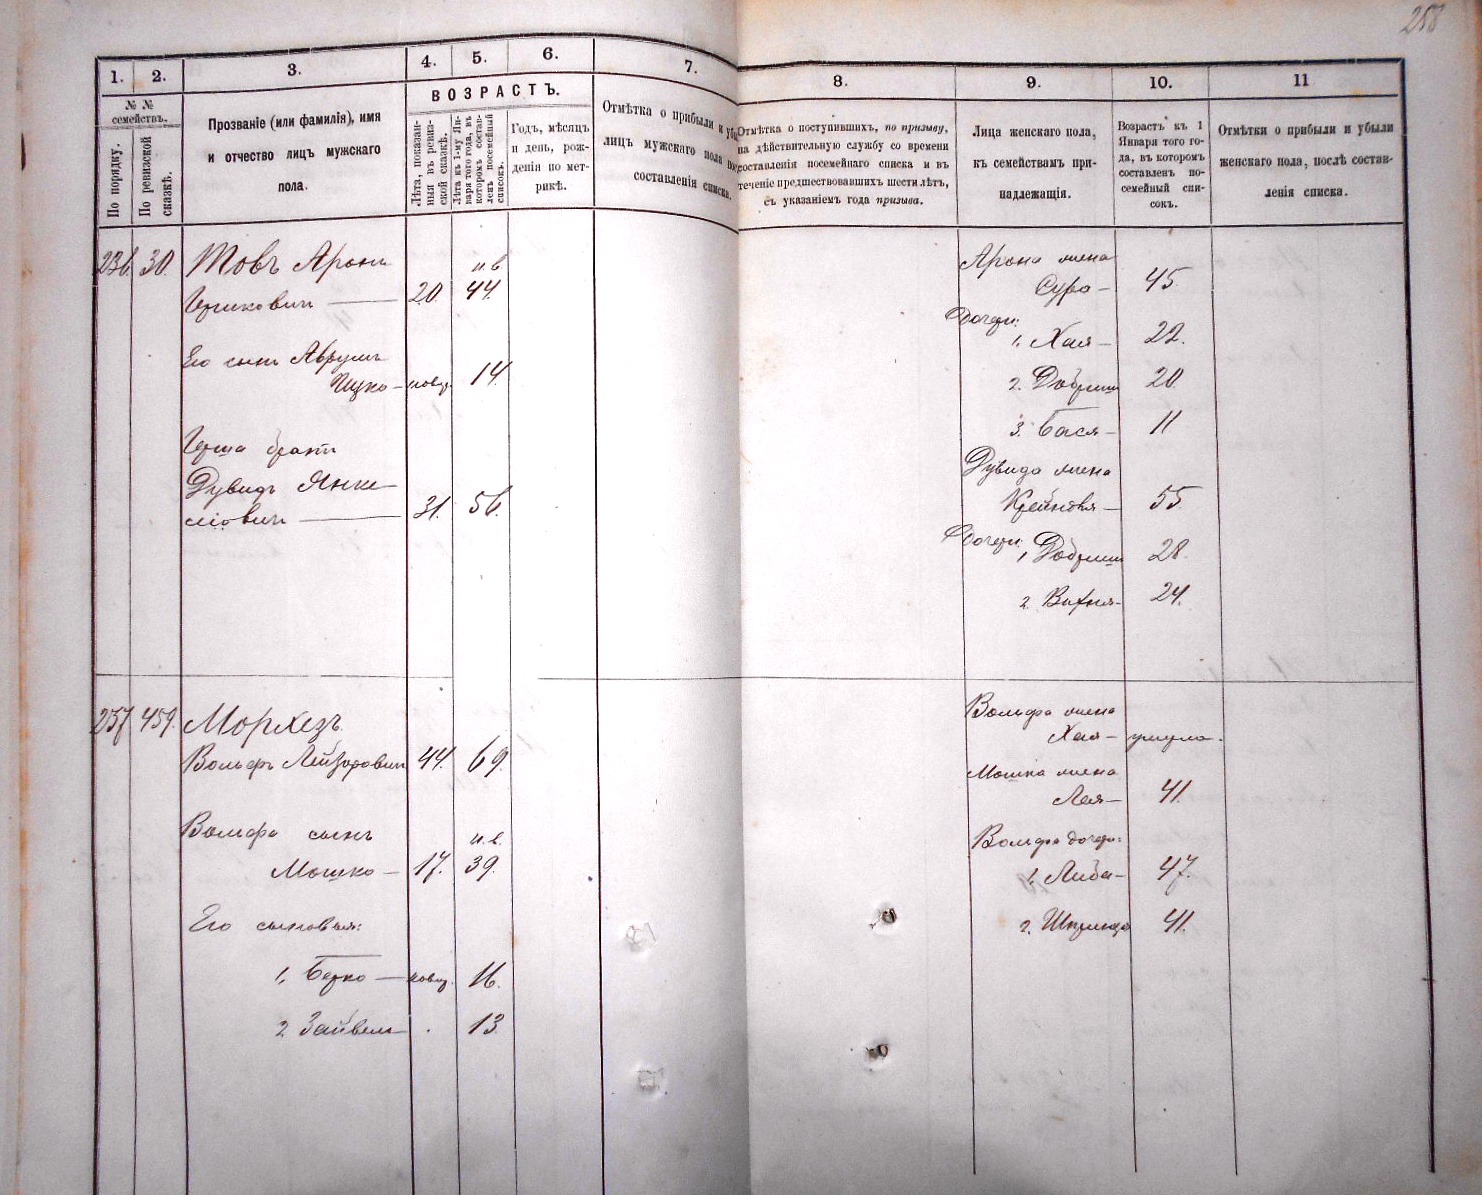 258
1. 2. 3. 4. 5. 6. 7. 8. 9. 10. 11
№ №
семействъ.
По порядку.
По ревизской
сказкѣ.
Прозваніе (или фамилія), имя
и отчество лицъ мужскаго
пола.
ВОЗРАСТЪ.
Лѣта, показан-
ныя въ ревиз-
ской сказкѣ.
Лѣта къ 1-му Ян-
варя того года, въ
которомъ состав-
ленъ посемейный
списокъ.
Годъ, мѣсяцъ
и день, рож-
денія по мет-
рикѣ.
Отмѣтка о прибыли и убы
лицъ мужского пола пос
составленія списка.
Отмѣтка о поступившихъ, по призыву,
на дѣйствительную службу со времени
составленія посемейнаго списка и въ
теченіе предшествовавшихъ шести лѣтъ,
съ указаніемъ года призыва.
Лица женскаго пола,
къ семействамъ при-
надлежащія.
Возрастъ къ 1
Января того го-
да, въ которомъ
составленъ по-
семейный спи-
сокъ.
Отмѣтки о прибыли и убыли
женскаго пола, послѣ состав-
ленія списка.
236. 30. Товъ Аронъ
н.в.
Гершковичъ — 20. 44.
Его сынъ Аврумъ
Ицко — новор. 14.
Герша братъ
Дувидъ Янке-
ліовичъ — 31. 56.
Арона жена
Сура — 45.
Дочери:
1. Хая — 22.
2. Добрыш 20.
3. Бася — 11
Дувида жена
55.
Дочери: 1. Добрыш 28.
2. 24.
237. 459. Морхезъ
Вольфъ Лейзоровичъ 44. 69.
Вольфа сынъ
н.в.
Мошко — 17. 39.
Его сыновья:
1. Берко — новор. 16.
2. Зайвель — 13.
Вольфа жена
Хая — умерла.
Мошка жена
Лея — 41.
Вольфа дочери:
1. Либа — 47.
2. Шпринца 41.